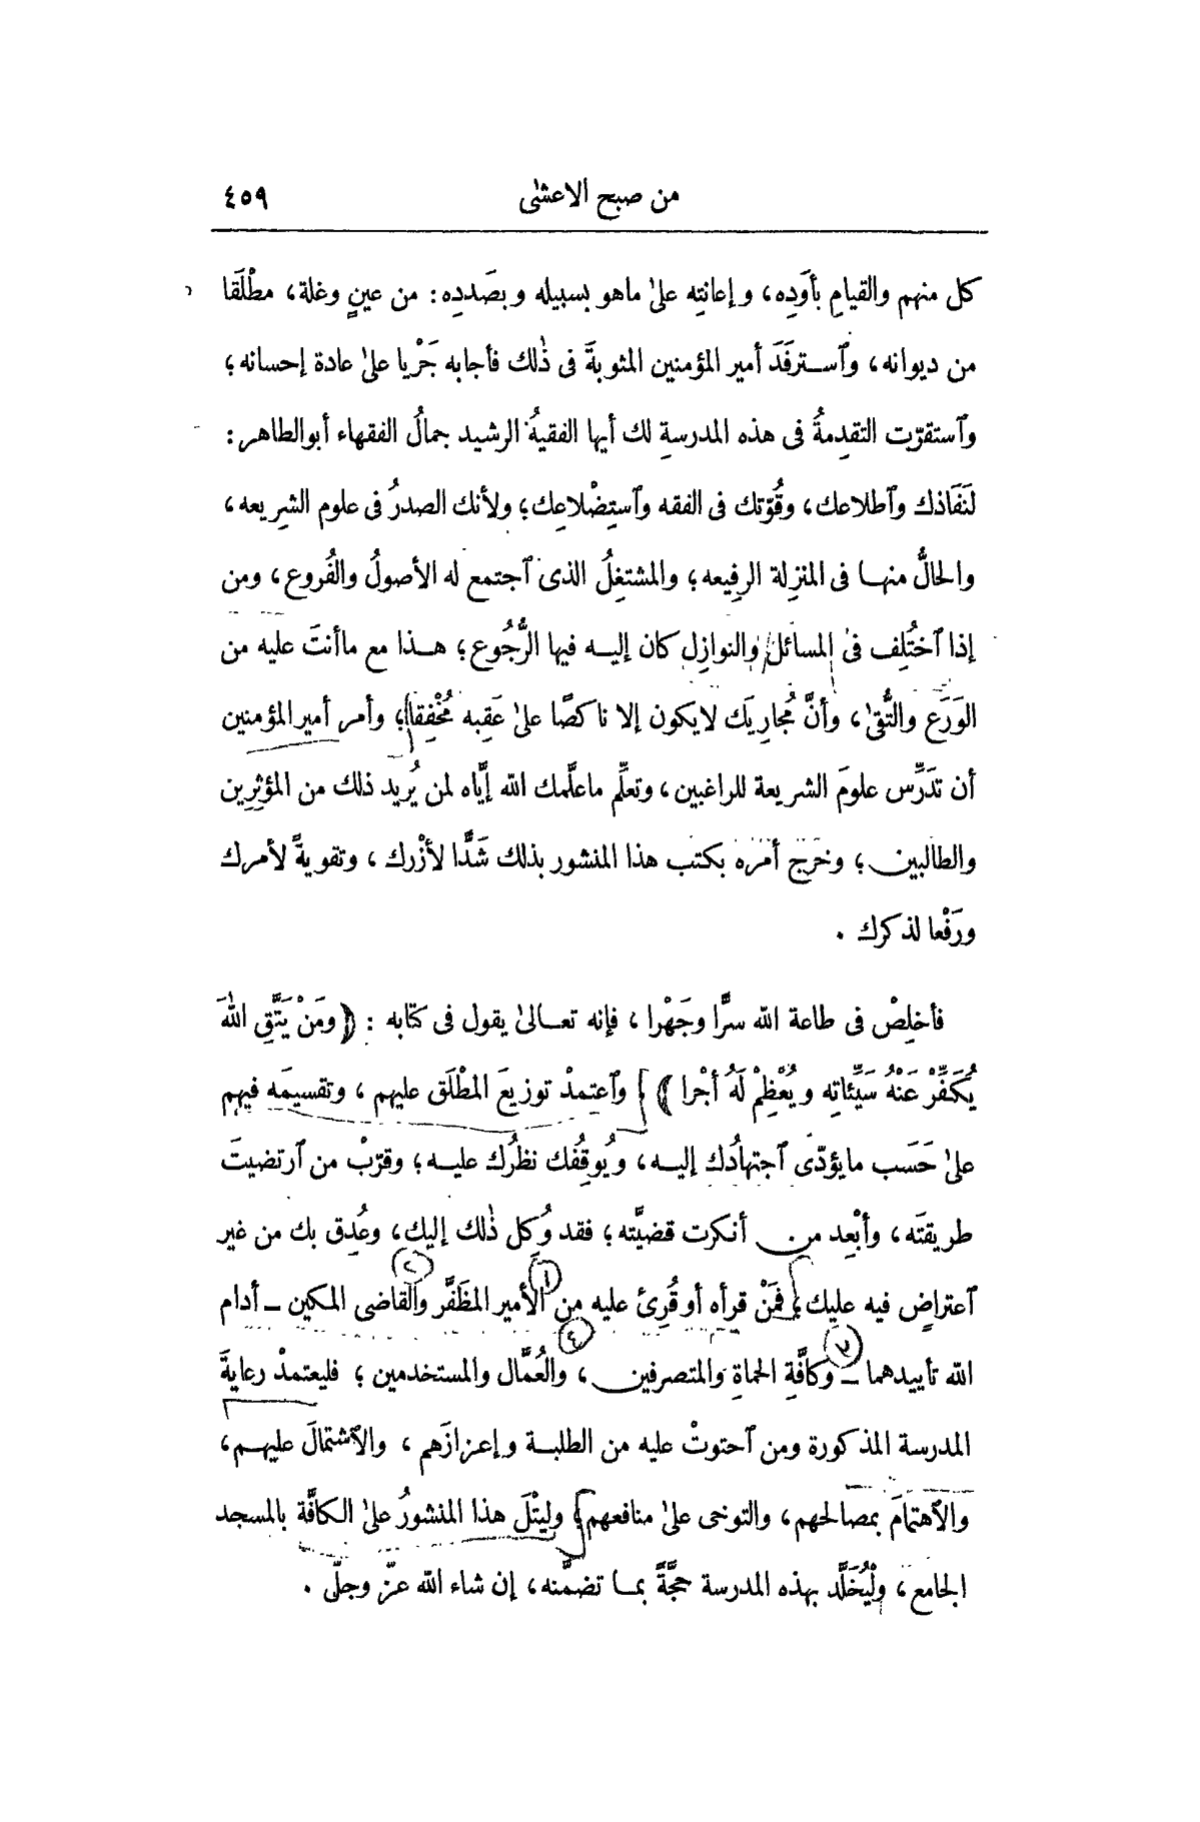 من صبح الاعشىٰ ٤٥٩
كل منهم والقيام بأَوَدِه، وإعانتِه علىٰ ماهو بسبيله وبصَددِه: من عينٍ وغلة، مطْلَقا
من ديوانه، وٱسـترفَدَ أمير المؤمنين المثوبةَ فى ذٰلك فأجابه جَرْيا علىٰ عادة إحسانه؛
وٱستقرّت التقدِمةُ فى هذه المدرسةِ لك أيها الفقيهُ الرشيد جمالُ الفقهاء أبوالطاهر:
لنَفَاذك وٱطلاعك، وقُوّتك فى الفقه وٱستِضْلاعِك؛ ولأنك الصدرُ فى علوم الشريعه،
والحالُّ منها فى المنزِلة الرفِيعه؛ والمشتغِلُ الذى ٱجتمع له الأصولُ والفُروع، ومن
إذا ٱختُلِف فى المسائل والنوازِلِ كان إليـه فيها الرُّجُوع؛ هـذا مع ماأنتَ عليه من
الوَرَع والتُّقىٰ، وأنَّ مُجارِيَك لايكون إلا ناكصًا علىٰ عَقِبه مُخْفِقا؛ وأمر أمير المؤمنين
أن تدَرِّس علومَ الشريعة للراغبين، وتعلِّم ماعلَّمك الله إيَّاه لمن يُريد ذلك من المؤثِرِين
والطالبين؛ وخرَج أمره بكتب هذا المنشور بذلك شَدًّا لأزْرك، وتقويةً لأمرك
ورَفْعا لذكرك .
فأخلِصْ فى طاعة الله سرًّا وجَهْرا، فإنه تعـالىٰ يقول فى كتابه : ﴿ومَنْ يَتَّقِ اللهَ
يُكَفِّرْ عَنْهُ سَيِّئَاتِه ويُعْظِمْ لَهُ أجْرا﴾ وٱعتمدْ توزيعَ المطْلَق عليهم، وتقسيمَه فيهم
علىٰ حَسَب مايؤدّى ٱجتهادُك إليـه، ويُوقِفُك نظرُك عليـه؛ وقرّبْ من ٱرتضيتَ
طريقتَه، وأبْعِد من أنكرت قضيَّته؛ فقد وُكِل ذٰلك إليك، وعُدِق بك من غير
ٱعتراضٍ فيه عليك؛ فمَنْ قرأه أو قُرِئ عليه من الأمير المظَفَّر والقاضى المكين ــ أدام
الله تأييدهما ــ وكافَّةِ الحماةِ والمتصرفين، والعُمَّال والمستخدمين؛ فليعتمدْ رعايةَ
المدرسة المذكورة ومن ٱحتوتْ عليه من الطلبـة وإعـزازَهم، والٱشتمالَ عليهـم،
والٱهتمامَ بمصالحهم، والتوخى علىٰ منافعهم؛ وليتْلَ هذا المنشورُ علىٰ الكافَّة بالمسجد
الجامع، ولْيُخَلَّد بهذه المدرسة حجَّةً بمـا تضمَّنه، إن شاء الله عزّ وجلّ .